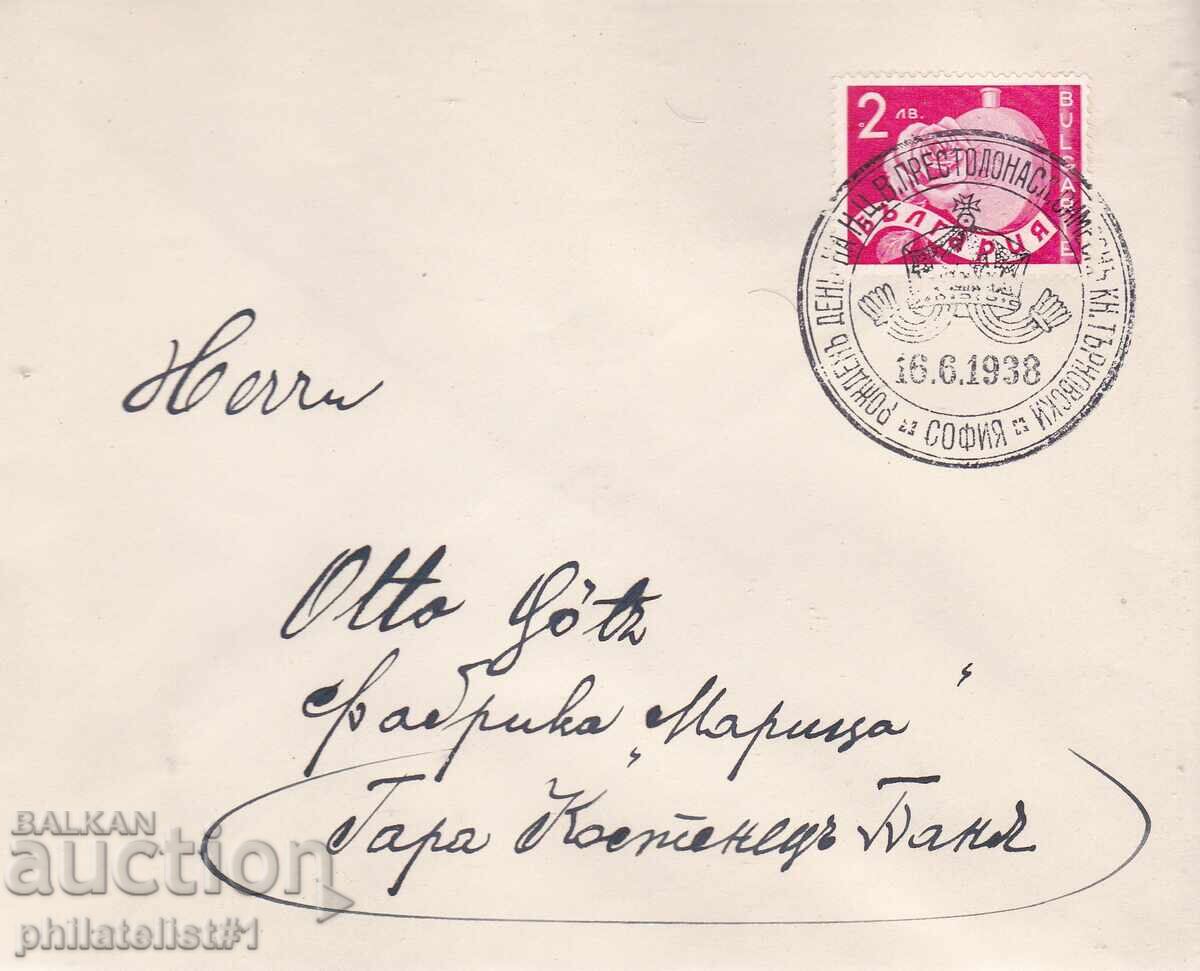 2 ЛВ.
BULGARIE
БЪЛГАРИЯ
РОЖДЕНЪ ДЕНЬ НА Н.Ц.В. ПРЕСТОЛОНАСЛ. СИМЕОНЪ КН. ТЪРНОВСКИ
16.6.1938
СОФИЯ
Herrn
Otto Götz
Фабрика „Марица“
Гара Костенецъ Баня
BALKAN
auction
philatelist#1